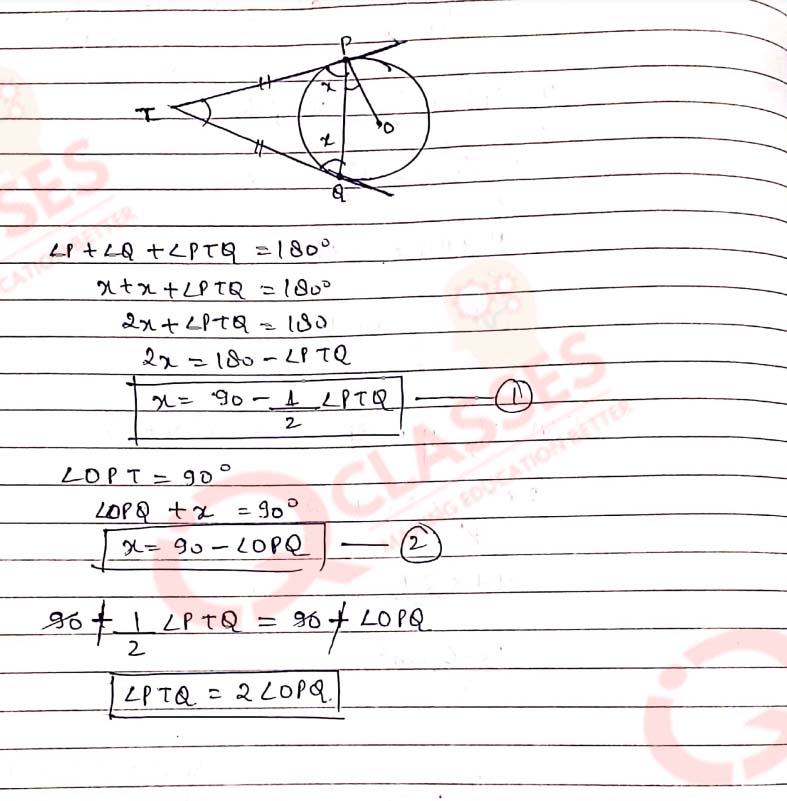 P
T
x
O
x
Q
∠P + ∠Q + ∠PTQ = 180°
x + x + ∠PTQ = 180°
2x + ∠PTQ = 180
2x = 180 - ∠PTQ
x = 90 - 1/2 ∠PTQ — ①
∠OPT = 90°
∠OPQ + x = 90°
x = 90 - ∠OPQ — ②
90 - 1/2 ∠PTQ = 90 - ∠OPQ
∠PTQ = 2 ∠OPQ.
CLASSES
MAKING EDUCATION BETTER
SES
CATION BETTER